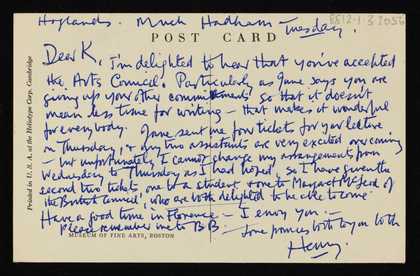 Hoglands. Much Hadham - Tuesday.
8812.1.3.2056
POST CARD
Dear K, I'm delighted to hear that you've accepted
the Arts Council. Particularly as Jane says you are
giving up your other commitments so that it doesn't
mean less time for writing - that makes it wonderful
for everybody. Jane sent me four tickets for your lecture
on Thursday, & my two assistants are very excited on coming
- but unfortunately I cannot change my arrangements from
Wednesday to Thursday as I had hoped, so I have given the
second two tickets, one to a student & one to Margaret McLeod of
the British Council, who are both delighted to be able to come.
Have a good time in Florence - I envy you :-
Please remember me to BB - Love from us both to you both
Henry.
Printed in U. S. A. at the Heliotype Corp. Cambridge
MUSEUM OF FINE ARTS, BOSTON